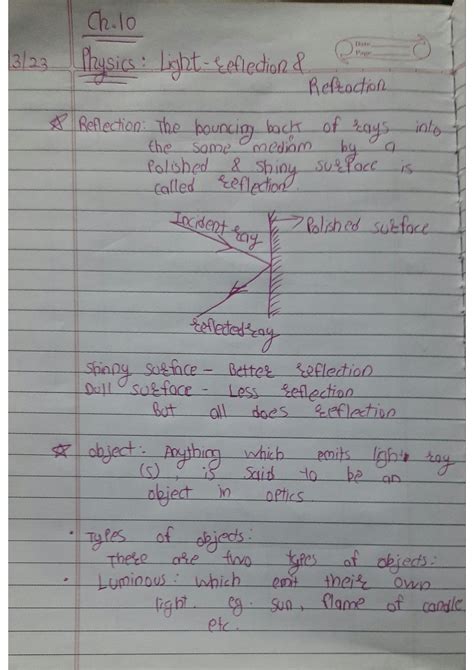 Ch.10
Date
Page
3/23 Physics: Light - reflection &
Refraction
☆ Reflection: The bouncing back of rays into
the same mediom by a
Polished & shiny surface is
called reflection.
Incident ray
Polished surface
reflected ray
shinny surface - Better reflection
Dull surface - Less reflection
But all does reflection
☆ object:- Anything which emits light ray
(s), is said to be an
object in optics.
• Types of objects:
There are two types of objects:
• Luminous: which emit their own
light. eg. sun, flame of candle
etc.